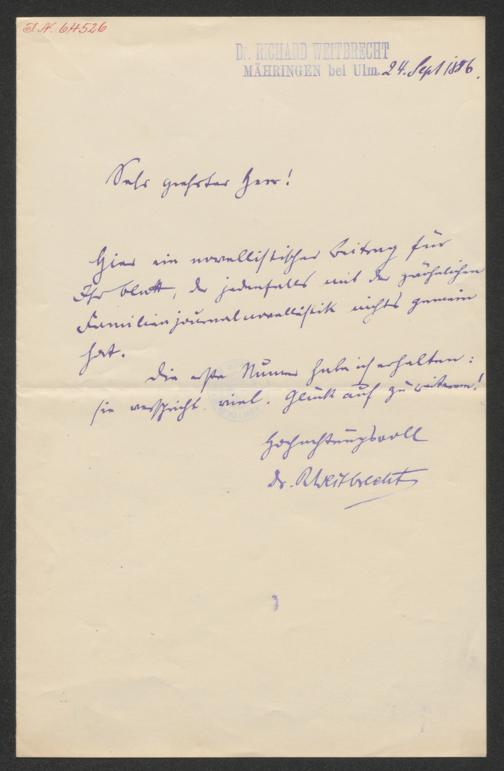 I.N. 64526
Dr. RICHARD WEITBRECHT
MÄHRINGEN bei Ulm. 24. Sept 1886.
Sehr geehrter Herr!
Hier ein novellistischer Beitrag für
Ihr Blatt, der jedenfalls mit der gewöhnlichen
Familienjournalnovellistik nichts gemein
hat.
Die erste Numer habe ich erhalten:
sie verspricht viel. Glück auf zu weiterem!
Hochachtungsvoll
Dr. RWeitbrecht